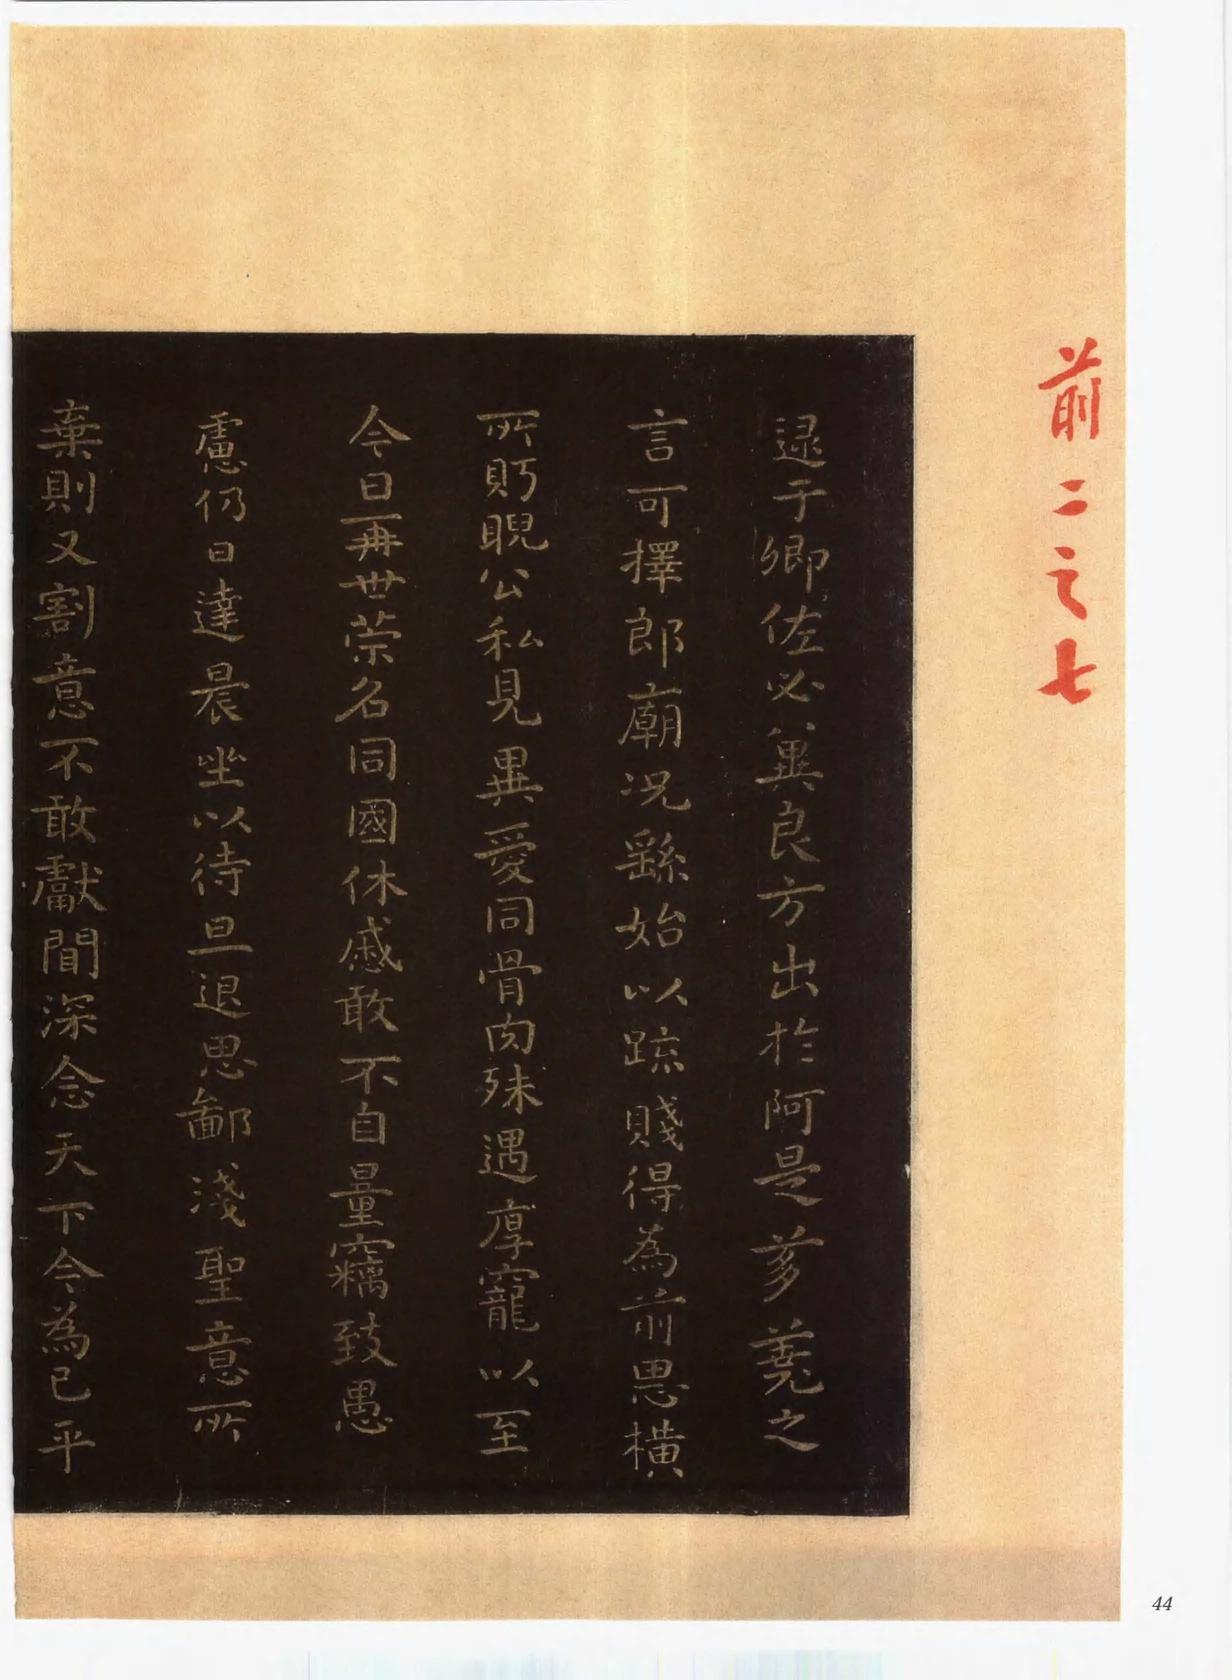 前二之七
逯于卿佐必冀良方出於阿是芻蕘之
言可擇郎廟况繇始以疏賤得為前恩橫
所眄睨公私見異愛同骨肉殊遇厚寵以至
今日再世荣名同國休慼敢不自量竊致愚
慮仍日達晨坐以待旦退思鄙淺聖意所
棄則又割意不敢獻聞深念天下今為已平
44